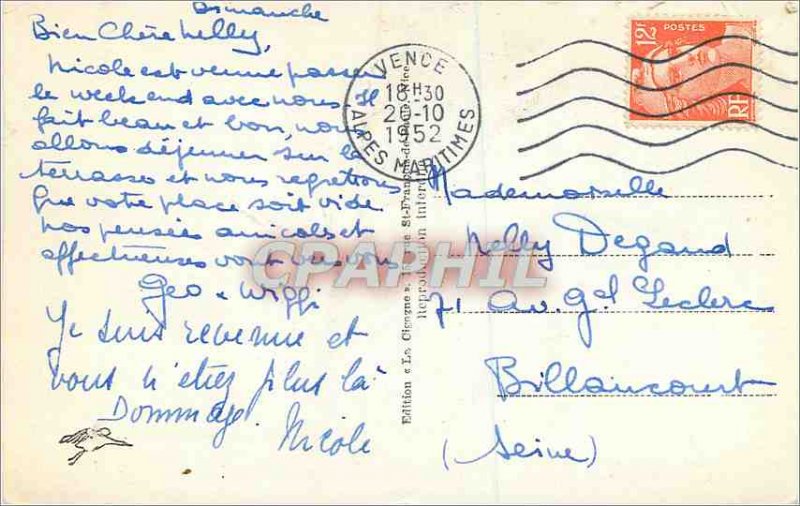 Dimanche
Bien Chère Nelly,
Nicole est venue passer
le week end avec nous Il
fait beau et bon, nous
allons déjeuner sur la
terrasse et nous regrettons
que votre place soit vide
nos pensées amicales et
affectueuses vont vers vous
Geo & Wiggi
Je suis revenue et
vous n'étiez plus là
Dommage. Nicole
VENCE
18H30
20-10
1952
ALPES MARITIMES
12F
POSTES
RF
Mademoiselle
Nelly Degand
71 Av. Gal Leclerc
Billancourt
(Seine)
Edition « La Cigogne », St-François-de Nice
Reproduction interdite
CPARPHIL